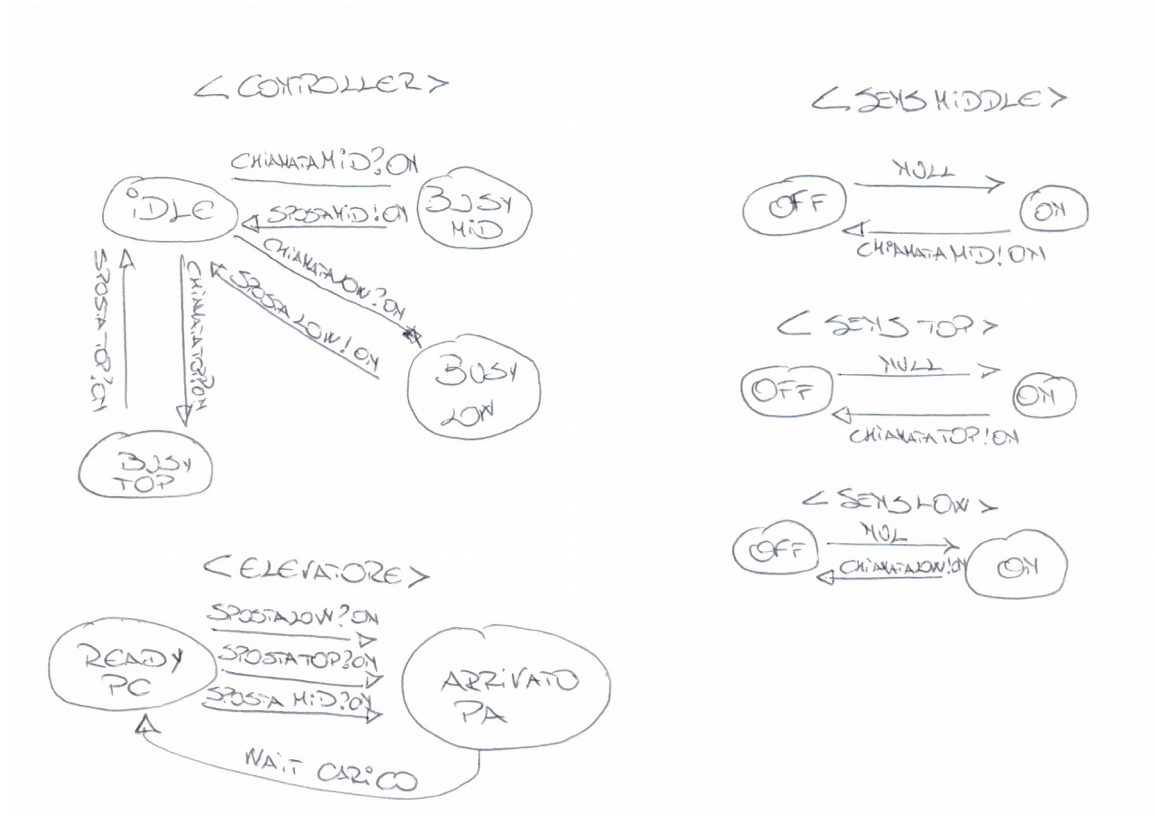 < CONTROLLER >
CHIAMATAMID?ON
IDLE
BUSY
MID
SPOSTAMID!ON
CHIAMATALOW?ON
SPOSTALOW!ON
SPOSTATOP!ON
CHIAMATATOP?ON
BUSY
LOW
BUSY
TOP
< ELEVATORE >
SPOSTALOW?ON
READY
PC
SPOSTATOP?ON
SPOSTA MID?ON
ARRIVATO
PA
WAIT CARICO
< SENS MIDDLE >
NULL
OFF
ON
CHIAMATAMID!ON
< SENS TOP >
NULL
OFF
ON
CHIAMATATOP!ON
< SENS LOW >
NUL
OFF
CHIAMATALOW!ON
ON